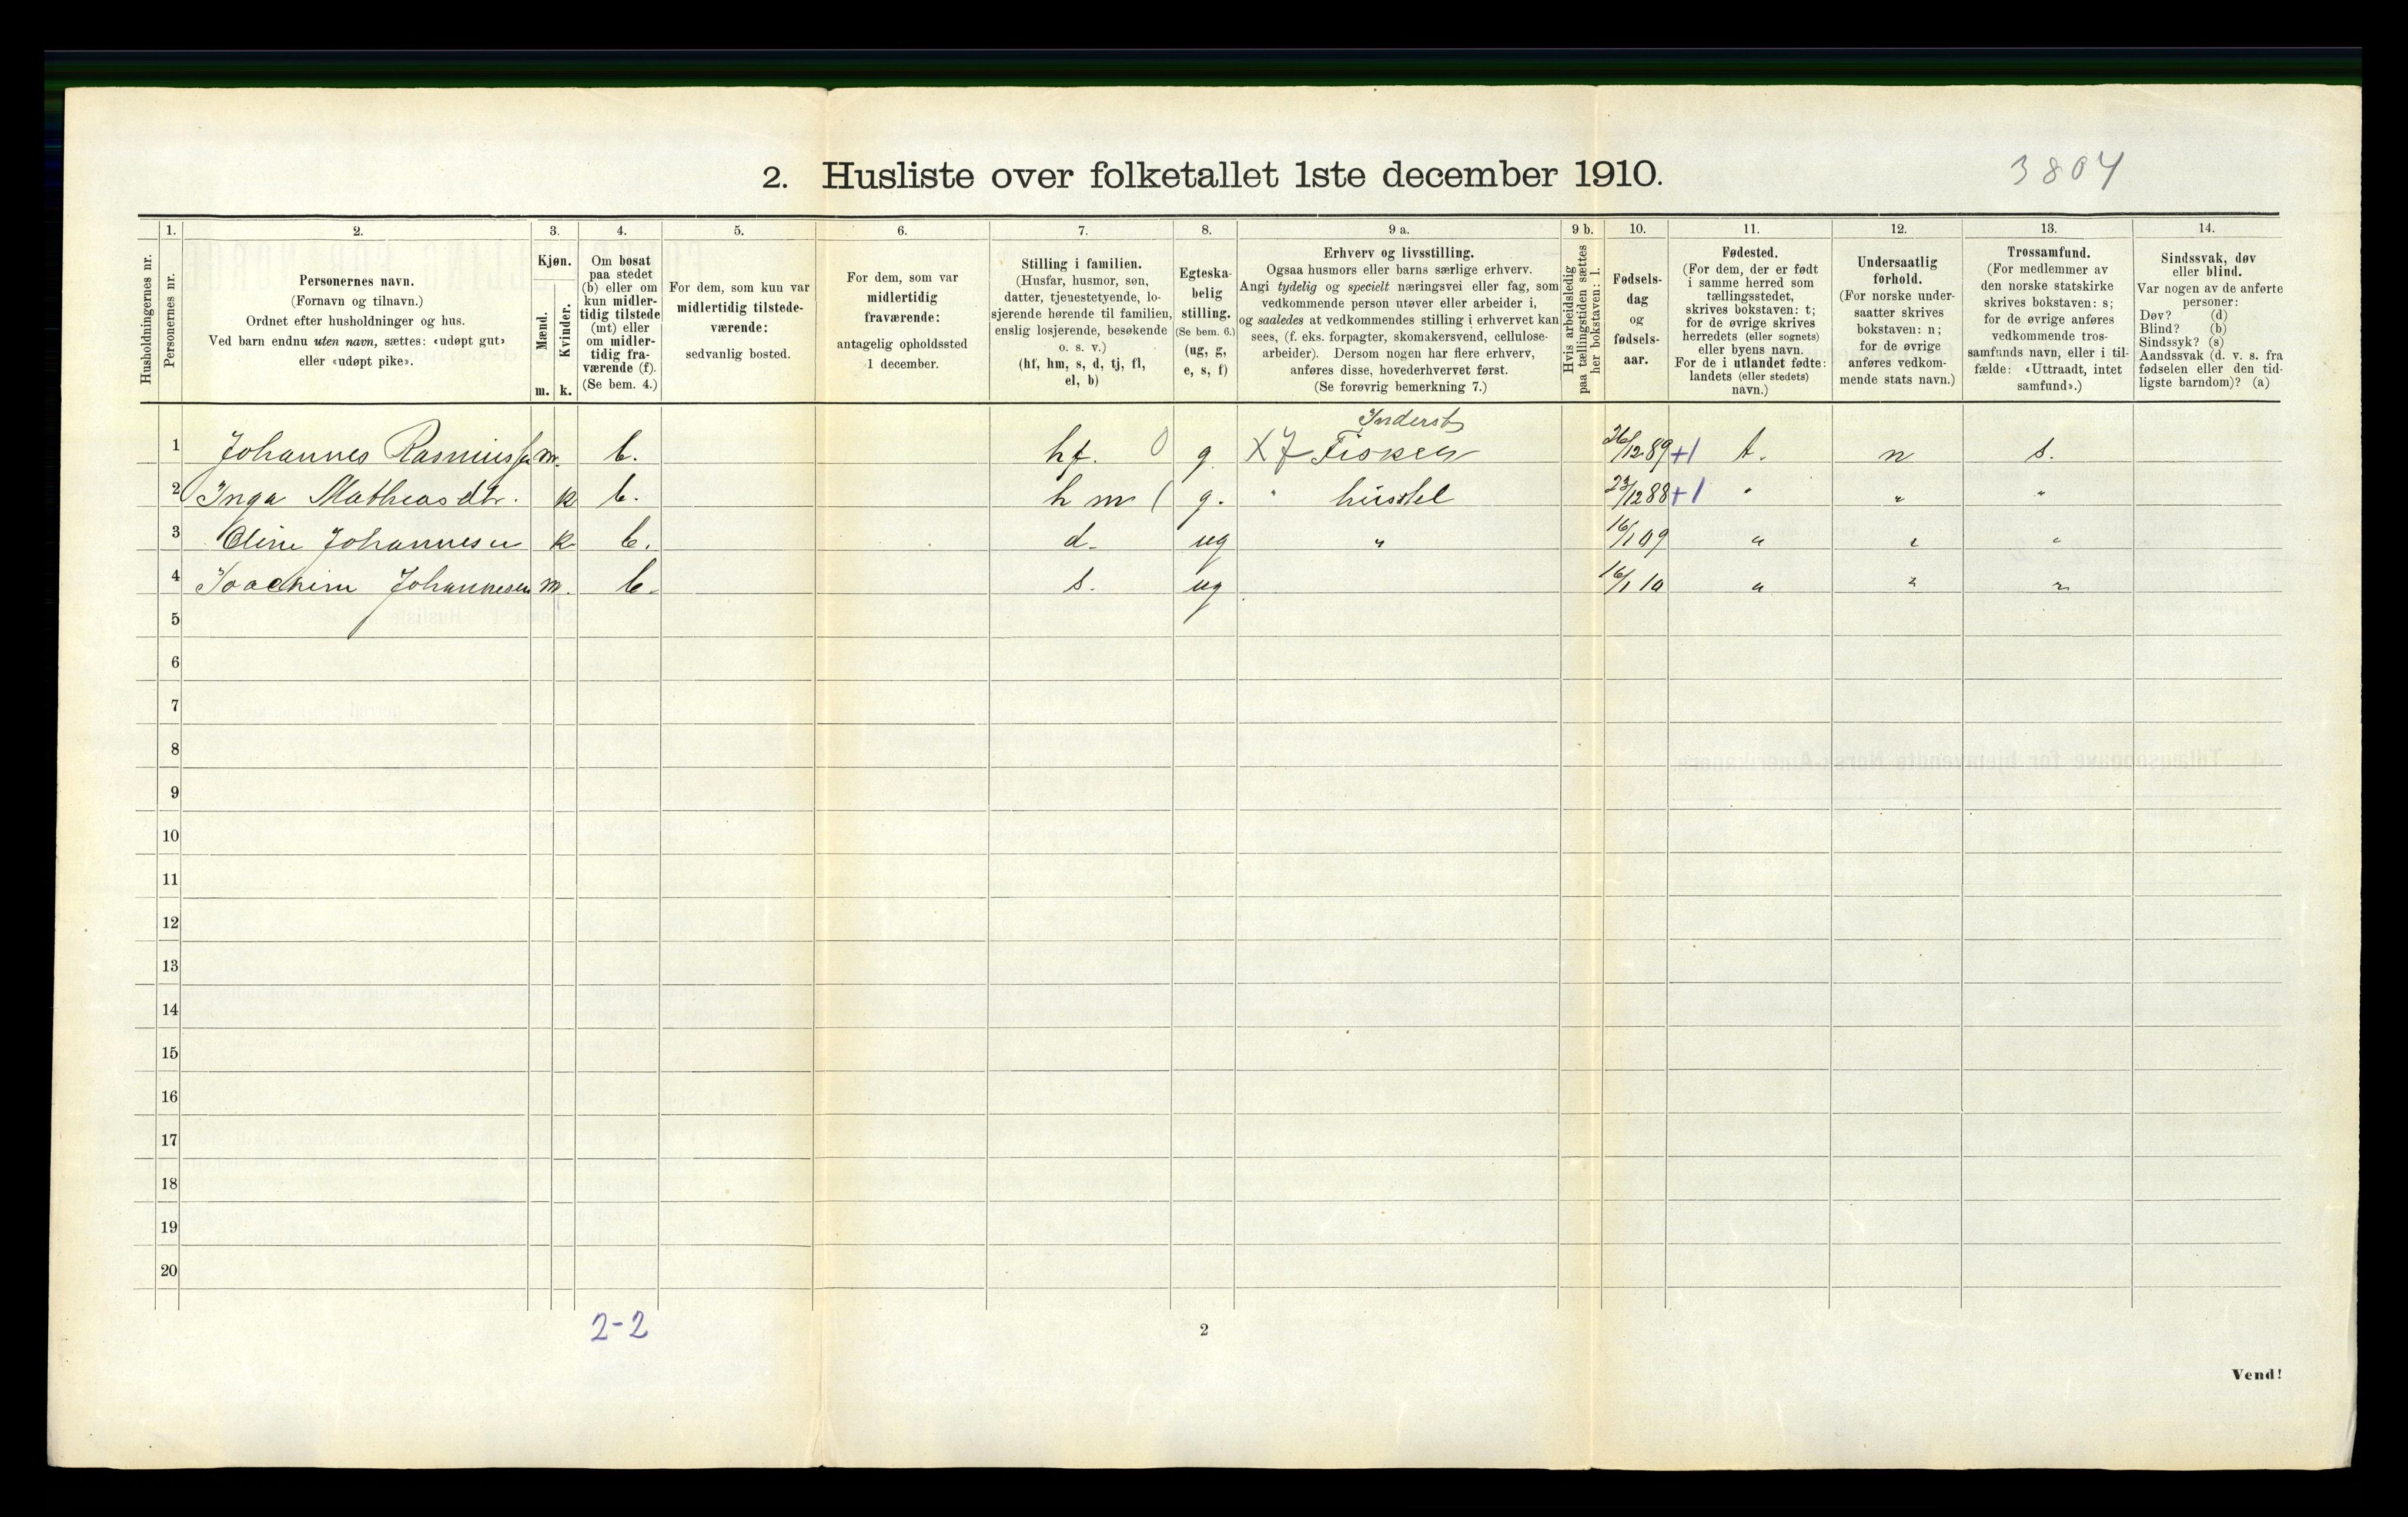 2. Husliste over folketallet 1ste december 1910.
3804
Husholdningernes nr.
1.
Personernes nr.
2.
Personernes navn.
(Fornavn og tilnavn.)
Ordnet efter husholdninger og hus.
Ved barn endnu uten navn, sættes: «udøpt gut»
eller «udøpt pike».
3.
Kjøn.
Mænd.
m.
Kvinder.
k.
4.
Om bosat
paa stedet
(b) eller om
kun midler-
tidig tilstede
(mt) eller
om midler-
tidig fra-
værende (f).
(Se bem. 4.)
5.
For dem, som kun var
midlertidig tilstede-
værende:
sedvanlig bosted.
6.
For dem, som var
midlertidig
fraværende:
antagelig opholdssted
1 december.
7.
Stilling i familien.
(Husfar, husmor, søn,
datter, tjenestetyende, lo-
sjerende hørende til familien,
enslig losjerende, besøkende
o. s. v.)
(hf, hm, s, d, tj, fl,
el, b)
8.
Egteska-
belig
stilling.
(Se bem. 6.)
(ug, g,
e, s, f)
9 a.
Erhverv og livsstilling.
Ogsaa husmors eller barns særlige erhverv.
Angi tydelig og specielt næringsvei eller fag, som
vedkommende person utøver eller arbeider i,
og saaledes at vedkommendes stilling i erhvervet kan
sees, (f. eks. forpagter, skomakersvend, cellulose-
arbeider). Dersom nogen har flere erhverv,
anføres disse, hovederhvervet først.
(Se forøvrig bemerkning 7.)
9 b.
Hvis arbeidsledig
paa tællingstiden sættes
her bokstaven: l.
10.
Fødsels-
dag
og
fødsels-
aar.
11.
Fødested.
(For dem, der er født
i samme herred som
tællingsstedet,
skrives bokstaven: t;
for de øvrige skrives
herredets (eller sognets)
eller byens navn.
For de i utlandet fødte:
landets (eller stedets)
navn.)
12.
Undersaatlig
forhold.
(For norske under-
saatter skrives
bokstaven: n;
for de øvrige
anføres vedkom-
mende stats navn.)
13.
Trossamfund.
(For medlemmer av
den norske statskirke
skrives bokstaven: s;
for de øvrige anføres
vedkommende tros-
samfunds navn, eller i til-
fælde: «Uttraadt, intet
samfund».)
14.
Sindssvak, døv
eller blind.
Var nogen av de anførte
personer:
Døv? (d)
Blind? (b)
Sindssyk? (s)
Aandssvak (d. v. s. fra
fødselen eller den tid-
ligste barndom)? (a)
1 Johannes m. b. hf. 0 g. X Fisker 26/12 89 +1 t. n s.
2 Inga Mathiasdtr. k b. hm g. " husstel 23/12 88 +1 " " "
3 Oline Johannesen k b. d. ug " 16/1 09 " " "
4 Joachim Johannesen m. b. s. ug 16/1 10 " " "
5
6
7
8
9
10
11
12
13
14
15
16
17
18
19
20
2-2
2
Vend!